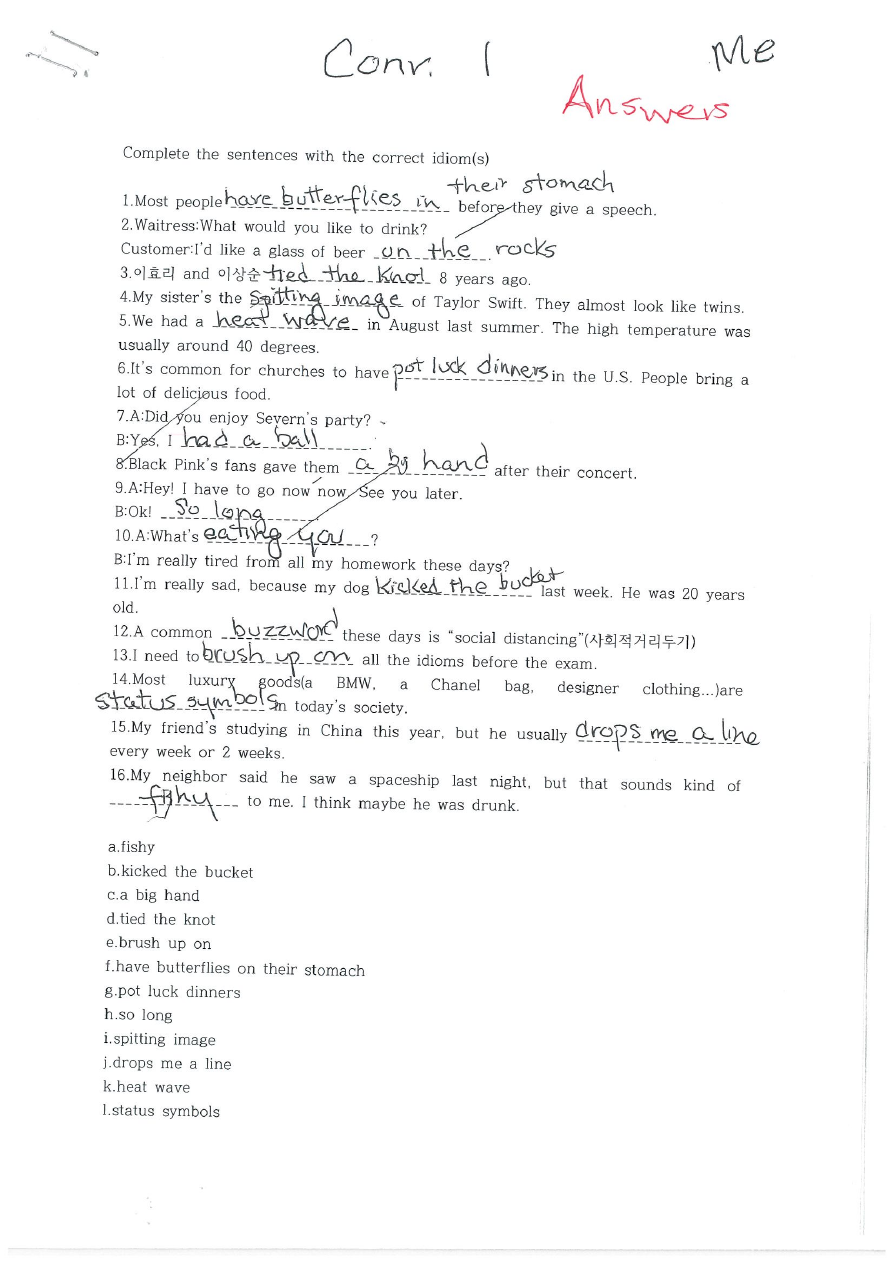 Conv. 1 Me
Answers
Complete the sentences with the correct idiom(s)
their stomach
1.Most people have butterflies in before they give a speech.
2.Waitress:What would you like to drink?
Customer:I'd like a glass of beer on the rocks
3.이효리 and 이상순 tied the knot 8 years ago.
4.My sister's the spitting image of Taylor Swift. They almost look like twins.
5.We had a heat wave in August last summer. The high temperature was
usually around 40 degrees.
6.It's common for churches to have pot luck dinners in the U.S. People bring a
lot of delicious food.
7.A:Did you enjoy Severn's party?
B:Yes, I had a ball.
8.Black Pink's fans gave them a big hand after their concert.
9.A:Hey! I have to go now now. See you later.
B:Ok! So long
10.A:What's eating you?
B:I'm really tired from all my homework these days?
11.I'm really sad, because my dog kicked the bucket last week. He was 20 years
old.
12.A common buzzword these days is "social distancing"(사회적거리두기)
13.I need to brush up on all the idioms before the exam.
14.Most luxury goods(a BMW, a Chanel bag, designer clothing...)are
status symbols in today's society.
15.My friend's studying in China this year, but he usually drops me a line
every week or 2 weeks.
16.My neighbor said he saw a spaceship last night, but that sounds kind of
fishy to me. I think maybe he was drunk.
a.fishy
b.kicked the bucket
c.a big hand
d.tied the knot
e.brush up on
f.have butterflies on their stomach
g.pot luck dinners
h.so long
i.spitting image
j.drops me a line
k.heat wave
l.status symbols